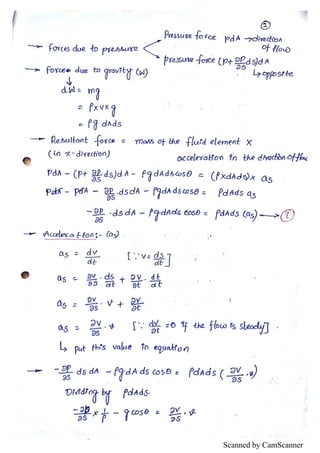 5
→ Forces due to pressure < Pressure force pdA → direction of flow
pressure force (p+ ∂p/∂s ds)dA ↳ opposite
→ Forces due to gravity (W)
↓
dW = mg
= ρ×V×g
= ρg dAds
→ Resultant force = mass of the fluid element ×
(in s-direction) acceleration in the direction of flow
PdA - (p+ ∂p/∂s ds)dA - ρgdAdscosθ = (ρ×dAds)× as
PdA - pdA - ∂p/∂s .dsdA - ρgdAdscosθ = ρdAds as
-∂p/∂s .ds dA - ρgdAds cosθ = ρdAds (as) → ①
→ Acceleration:- (as)
as = dv/dt [∵ v = ds/dt]
as = ∂v/∂s . ds/dt + ∂v/∂t . dt/dt
as = ∂v/∂s . v + ∂v/∂t
as = ∂v/∂s . v [∵ ∂v/∂t =0 if the flow is steady]
↳ put this value in equation
→ -∂p/∂s ds dA - ρg dA ds cosθ = ρdAds (∂v/∂s .v)
Dividing by ρdAds.
-∂p/∂s × 1/ρ - g cosθ = ∂v/∂s . v
Scanned by CamScanner